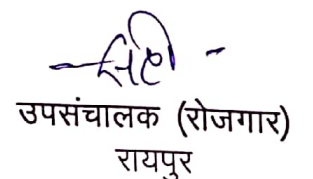 —सही -
उपसंचालक (रोजगार)
रायपुर